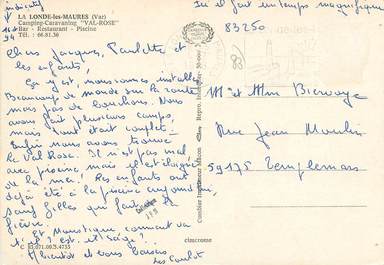 indicatif
16 et
94
LA LONDE-les-MAURES (Var)
Camping-Caravaning "VAL-ROSE"
Bar - Restaurant - Piscine
Tél. : 66.81.36
Ici il fait un temps magnifique
83250
Chers Jacques, Paulette et
les enfants,
Ça y est, nous sommes installés
Beaucoup de monde sur la route
mais pas de bouchons. Nous
avons fait plusieurs camps,
mais tout était complet.
Enfin nous avons trouvé
le Val Rose. Il n'est pas mal
avec piscine, mais il est éloigné
de la mer. Les enfants ont
déjà été à la piscine aujourd'hui
sauf Gilles qui fait de la
fièvre.
Et Moustique comment va
t'il ? est-il sage ?
A bientôt et bons baisers
M et Mme
Rue Jean Moulin
59175 Templemars
Combier Imprimeur Mâcon
cimcrome